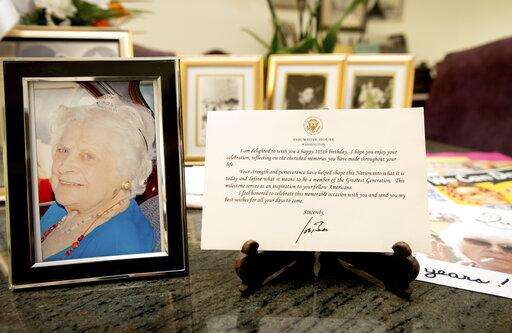 THE WHITE HOUSE
WASHINGTON
I am delighted to wish you a happy 105th birthday. I hope you enjoy your
celebration, reflecting on the cherished memories you have made throughout your
life.
Your strength and perseverance have helped shape this Nation into what it is
today and define what it means to be a member of the Greatest Generation. This
milestone serves as an inspiration to your fellow Americans.
I feel honored to celebrate this memorable occasion with you and send you my
best wishes for all your days to come.
Sincerely,
years!